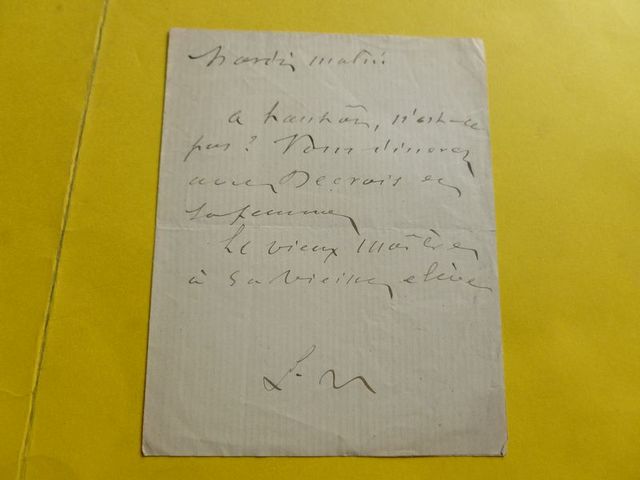 Mardi matin
a tantôt, n'est-ce
pas? Vous dînerez
avec Decrais et
sa femme
Le vieux maître
à sa vieille élève